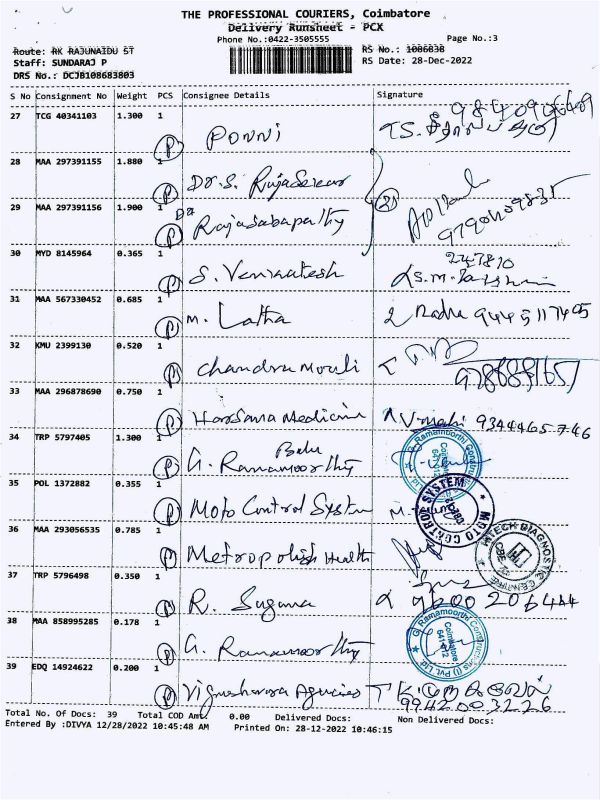 THE PROFESSIONAL COURIERS, Coimbatore
Delivery Runsheet - PCX
Phone No.:0422-3505555 Page No.:3
Route: RK RAJUNAIDU ST RS No.: 1086838
Staff: SUNDARAJ P RS Date: 28-Dec-2022
DRS No.: DCJB108683803
S No Consignment No Weight PCS Consignee Details Signature
27 TCG 40341103 1.300 1
P PONNI
28 MAA 297391155 1.880 1
P Dr. S. Rajasekar
29 MAA 297391156 1.900 1
P Dr Rajasabapathy
30 MYD 8145964 0.365 1 247810
P S. Venkatesh
31 MAA 567330452 0.685 1
P M. Latha Radha 9445117405
32 KMU 2399130 0.520 1
P Chandru Mouli
33 MAA 296878690 0.750 1
P Medicine 9344465746
34 TRP 5797405 1.300 1
P G. Ramamoorthy
35 POL 1372882 0.355 1
P Moto Control System
MOTO CONTROL SYSTEM
36 MAA 293056535 0.785 1
P Metropolish Health
HITECH DIAGNOSTIC CENTRE
37 TRP 5796498 0.350 1
P R. Suguna
38 MAA 858995285 0.178 1
P G. Ramamoorthy
G. Ramamoorthi Constructions (I) Pvt. Ltd.
Coimbatore
641 012
39 EDQ 14924622 0.200 1
P Vigneshwara Agencies
9942003226
Total No. Of Docs: 39 Total COD Amt: 0.00 Delivered Docs: Non Delivered Docs:
Entered By :DIVYA 12/28/2022 10:45:48 AM Printed On: 28-12-2022 10:46:15